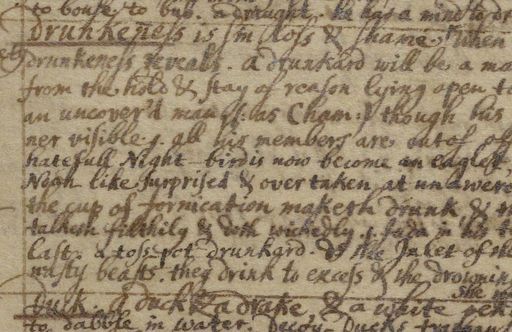 to bouse to bub. a draught. he has a mind to dr
Drunkeness is sin loss & shame. when
drunkeness reveals. a drunkard will be a mo
from the hold & stay of reason lying open to
an uncover'd man (as Cham:) though his
ner visible. all his members are out of
hatefull Night-birds now become an eagles,
Noah like surprised & overtaken at unawere
the cup of fornication maketh drunk &
talketh filthily & doth wickedly.
last. a toss-pot drunkard. the Inlet of the
nasty beasts. they drink to excess & the drowning
Duck. a duck & a drake, & a white
to dabble in water. Decoy Duck.